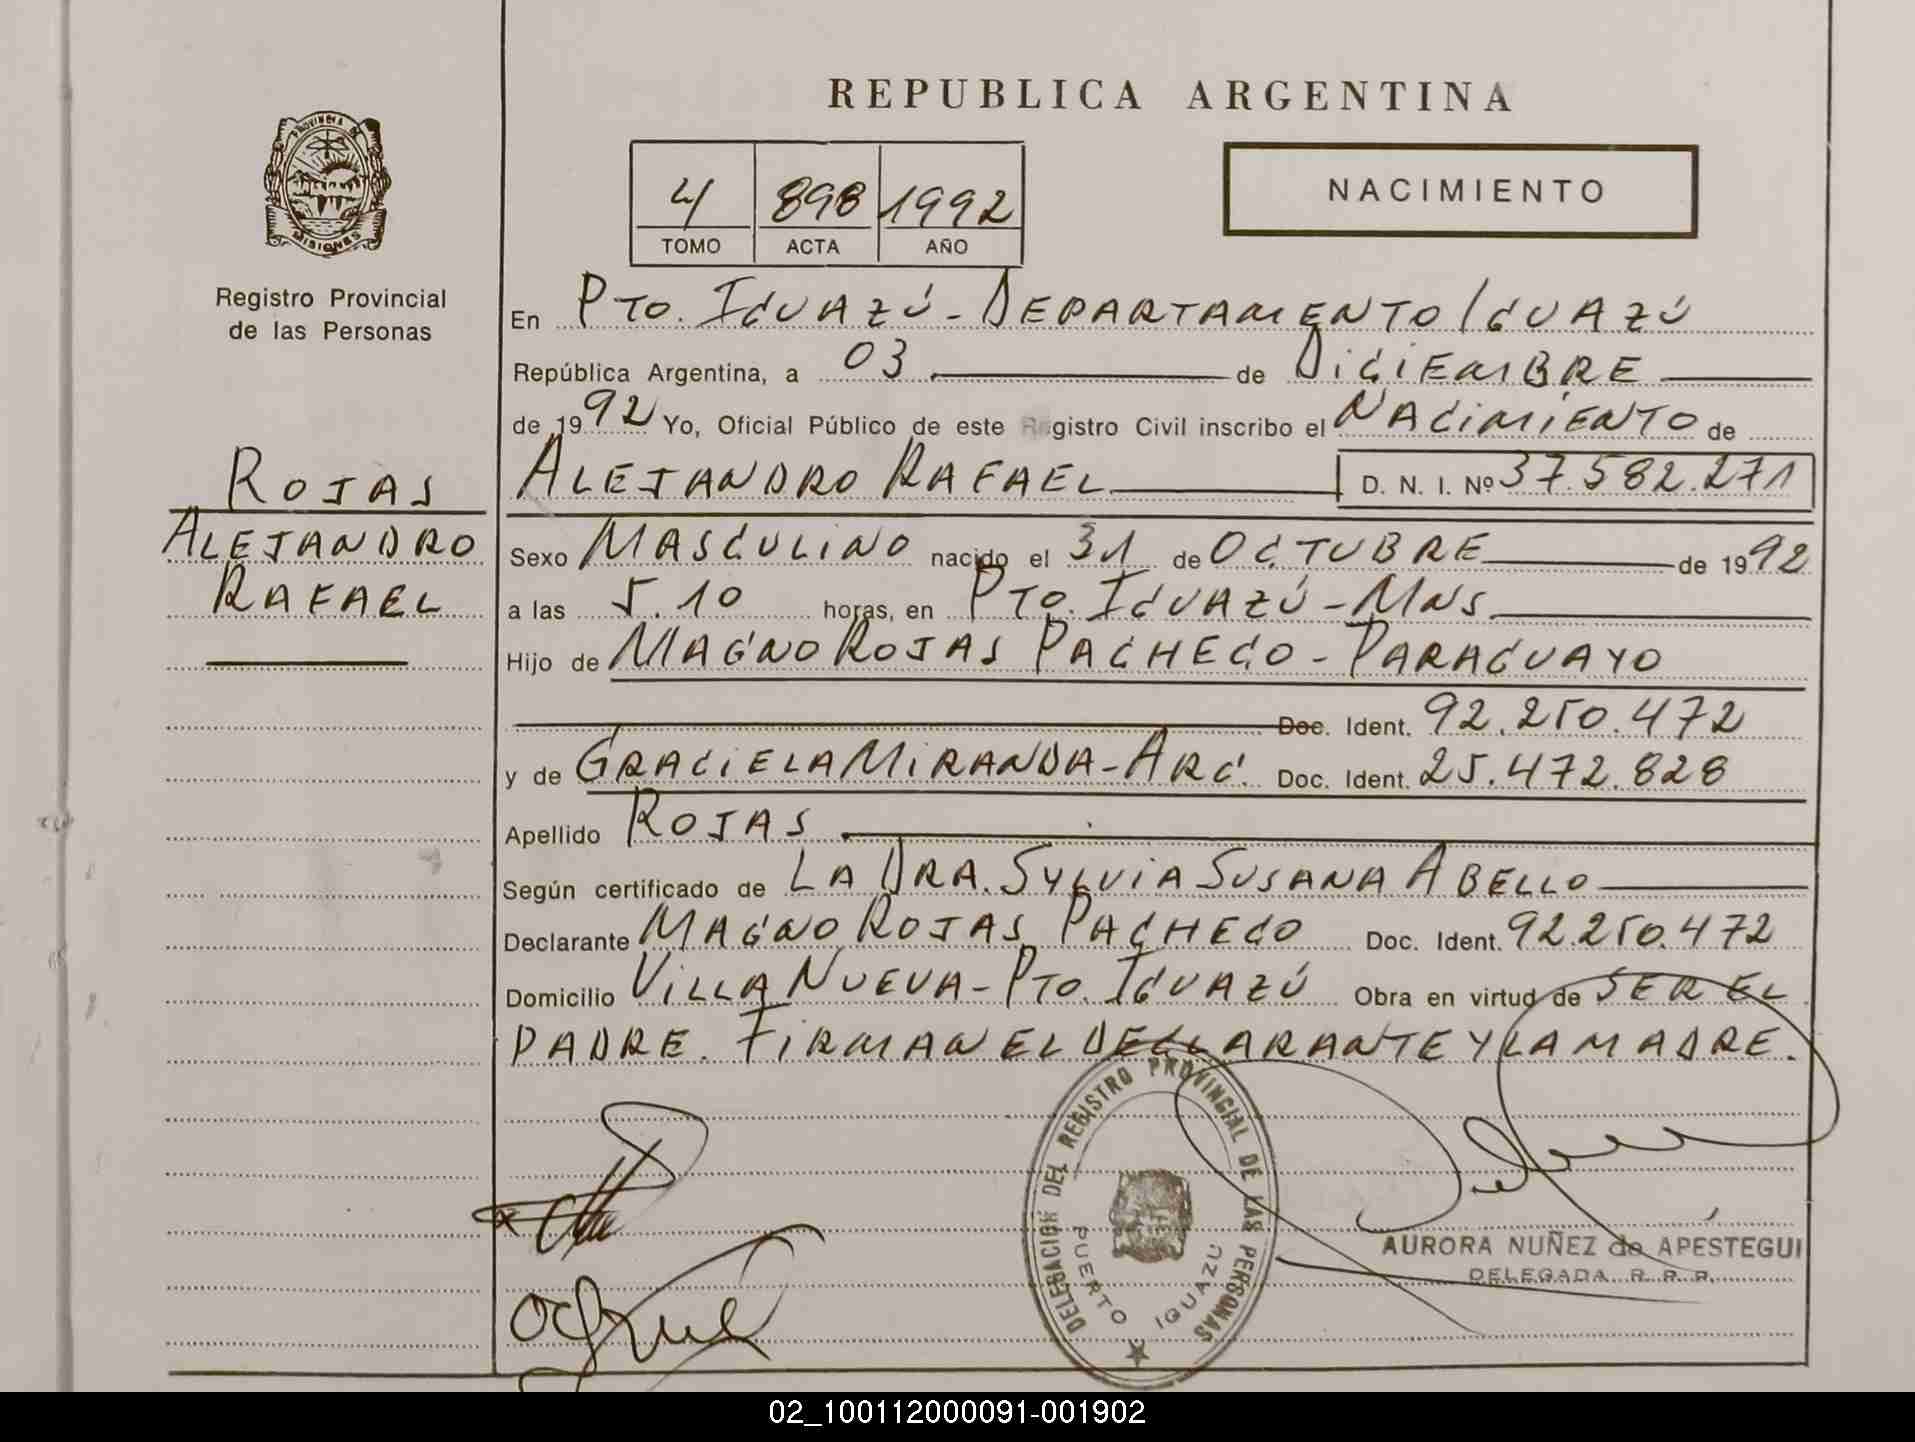 REPUBLICA ARGENTINA
PROVINCIA DE MISIONES
Registro Provincial
de las Personas
4 898 1992
TOMO ACTA AÑO
NACIMIENTO
En PTO. IGUAZÚ - DEPARTAMENTO IGUAZÚ
República Argentina, a 03 de DICIEMBRE
de 1992 Yo, Oficial Público de este Registro Civil inscribo el NACIMIENTO de
ROJAS
ALEJANDRO
RAFAEL
ALEJANDRO RAFAEL D. N. I. Nº 37.582.271
Sexo MASCULINO nacido el 31 de OCTUBRE de 1992
a las 5.10 horas, en PTO. IGUAZÚ - MNS
Hijo de MAGNO ROJAS PACHECO - PARAGUAYO
Doc. Ident. 92.250.472
y de GRACIELA MIRANDA - ARG. Doc. Ident. 25.472.828
Apellido ROJAS
Según certificado de LA DRA. SYLVIA SUSANA ABELLO
Declarante MAGNO ROJAS PACHECO Doc. Ident. 92.250.472
Domicilio VILLA NUEVA - PTO. IGUAZÚ Obra en virtud de SER EL
PADRE. FIRMAN EL DECLARANTE Y LA MADRE.
DELEGACION DEL REGISTRO PROVINCIAL DE LAS PERSONAS
PUERTO IGUAZU
AURORA NUÑEZ de APESTEGUI
DELEGADA R. P. P.
02_100112000091-001902